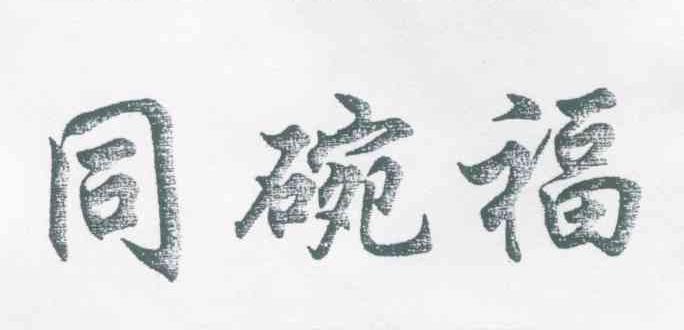 同碗福